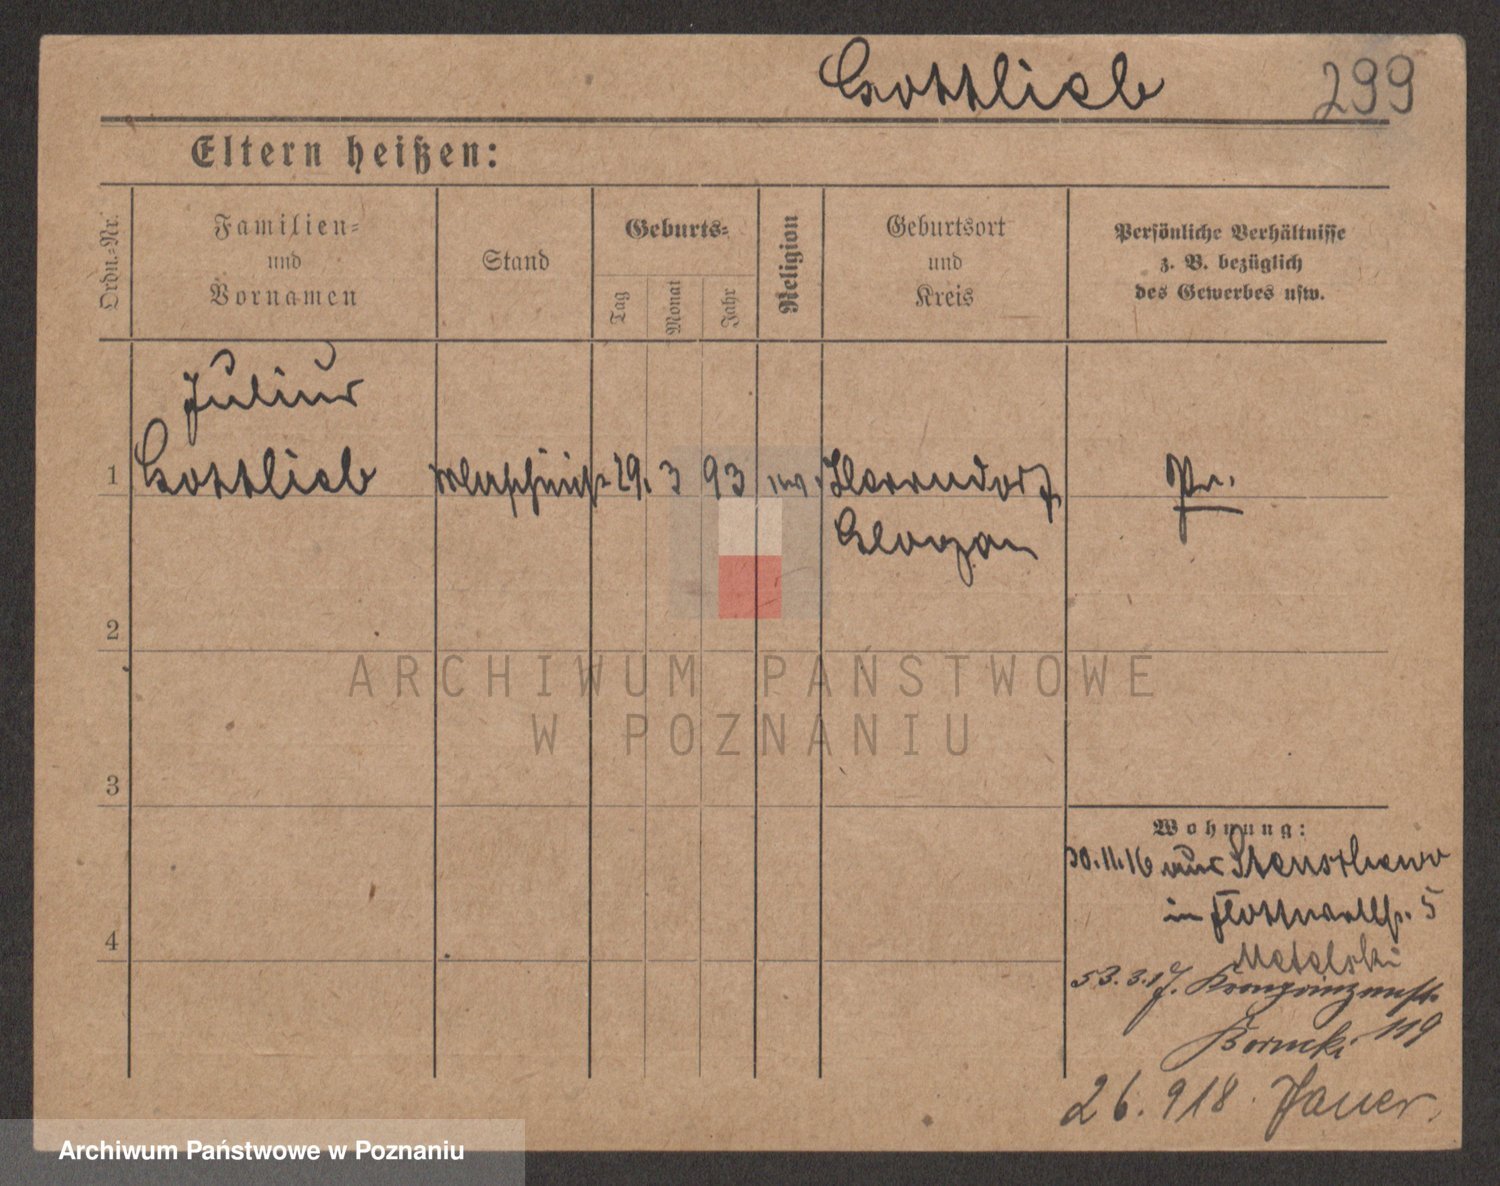 Gottlieb 299
Eltern heißen:
Ordn.-Nr.
Familien-
und
Vornamen
Stand
Geburts-
Tag
Monat
Jahr
Religion
Geburtsort
und
Kreis
Persönliche Verhältnisse
z. B. bezüglich
des Gewerbes usw.
Julius
1 Gottlieb 29. 3 93 Herrndorf Pr.
Glogau
2
3
4
Wohnung:
30.11.16 aus
in Flottwellstr. 5
Metelski
3.3.17. Kronprinzenstr.
119
26.9 18. Jauer.
ARCHIWUM PAŃSTWOWE
W POZNANIU
Archiwum Państwowe w Poznaniu